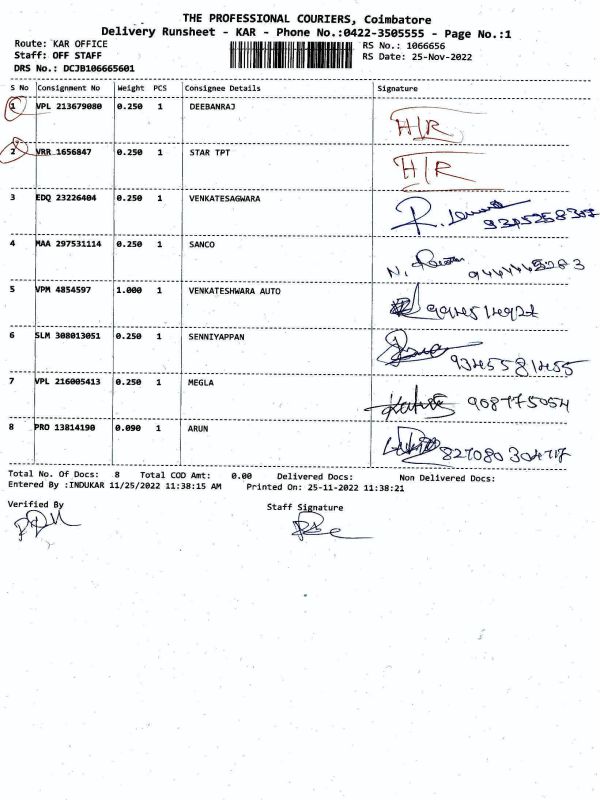 THE PROFESSIONAL COURIERS, Coimbatore
Delivery Runsheet - KAR - Phone No.:0422-3505555 - Page No.:1
Route: KAR OFFICE RS No.: 1066656
Staff: OFF STAFF RS Date: 25-Nov-2022
DRS No.: DCJB106665601
S No Consignment No Weight PCS Consignee Details Signature
1 VPL 213679080 0.250 1 DEEBANRAJ H/R
2 VRR 1656847 0.250 1 STAR TPT H/R
3 EDQ 23226404 0.250 1 VENKATESAGWARA
4 MAA 297531114 0.250 1 SANCO
5 VPM 4854597 1.000 1 VENKATESHWARA AUTO
6 SLM 308013051 0.250 1 SENNIYAPPAN
7 VPL 216005413 0.250 1 MEGLA
8 PRO 13814190 0.090 1 ARUN
Total No. Of Docs: 8 Total COD Amt: 0.00 Delivered Docs: Non Delivered Docs:
Entered By :INDUKAR 11/25/2022 11:38:15 AM Printed On: 25-11-2022 11:38:21
Verified By Staff Signature